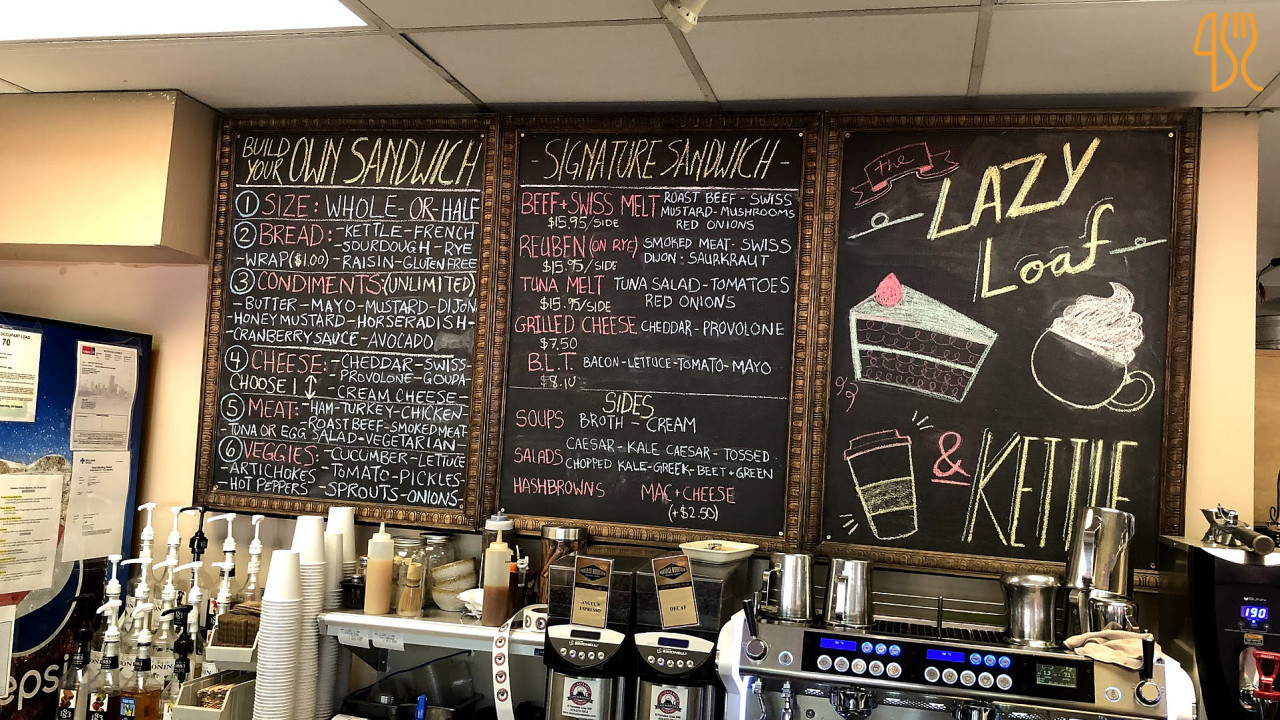 BUILD YOUR OWN SANDWICH
1 SIZE: WHOLE-OR-HALF
2 BREAD: -KETTLE-FRENCH
-SOURDOUGH-RYE
-WRAP($1.00) -RAISIN-GLUTEN FREE
3 CONDIMENTS:(UNLIMITED)
-BUTTER-MAYO-MUSTARD-DIJON
-HONEY MUSTARD-HORSERADISH-
-CRANBERRY SAUCE-AVOCADO
4 CHEESE: -CHEDDAR-SWISS-
CHOOSE 1 -PROVOLONE-GOUPA-
-CREAM CHEESE-
5 MEAT: -HAM-TURKEY-CHICKEN-
-ROAST BEEF-SMOKED MEAT-
-TUNA OR EGG SALAD-VEGETARIAN-
6 VEGGIES: -CUCUMBER-LETTUCE
-ARTICHOKES -TOMATO-PICKLES-
-HOT PEPPERS -SPROUTS-ONIONS-
-SIGNATURE SANDWICH-
BEEF+SWISS MELT ROAST BEEF-SWISS
MUSTARD-MUSHROOMS
$15.95/SIDE RED ONIONS
REUBEN (ON RYE) SMOKED MEAT-SWISS
$15.95/SIDE DIJON-SAURKRAUT
TUNA MELT TUNA SALAD-TOMATOES
$15.95/SIDE RED ONIONS
GRILLED CHEESE CHEDDAR-PROVOLONE
$7.50
B.L.T. BACON-LETTUCE-TOMATO-MAYO
SIDES
SOUPS BROTH-CREAM
SALADS CAESAR-KALE CAESAR-TOSSED
CHOPPED KALE-GREEK-BEET+GREEN
HASHBROWNS MAC+CHEESE
(+$2.50)
the
LAZY
Loaf
&
KETTLE
OCCUPANT LOAD
70
epsi
ANGELIC
ESPRESSO
DECAF
BUNN
190